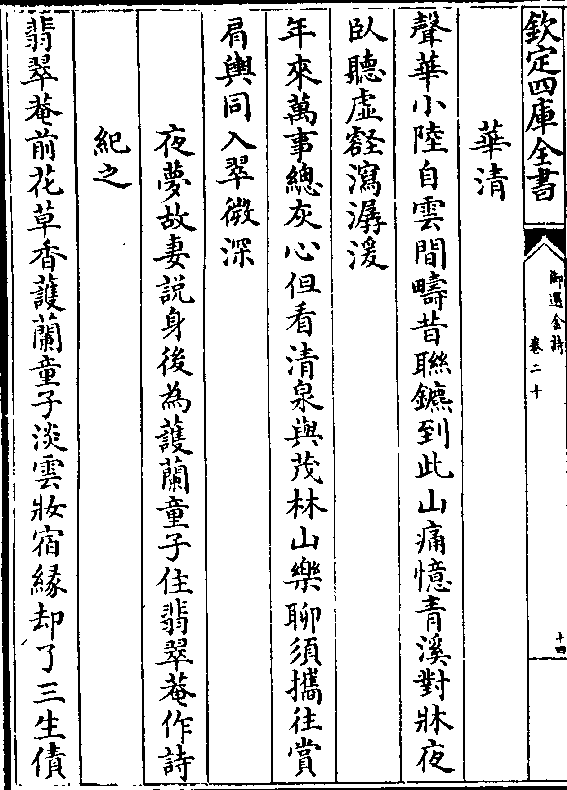 欽定四庫全書
御選金詩
卷二十
十四
華清
聲華小陸自雲間疇昔聯鑣到此山痛憶青溪對牀夜
卧聽虛壑瀉潺湲
年來萬事總灰心但看清泉與茂林山樂聊須攜往賞
肩輿同入翠微深
夜夢故妻説身後為䕶蘭童子住翡翠菴作詩
紀之
翡翠菴前花草香䕶蘭童子淡雲妝宿緣却了三生債